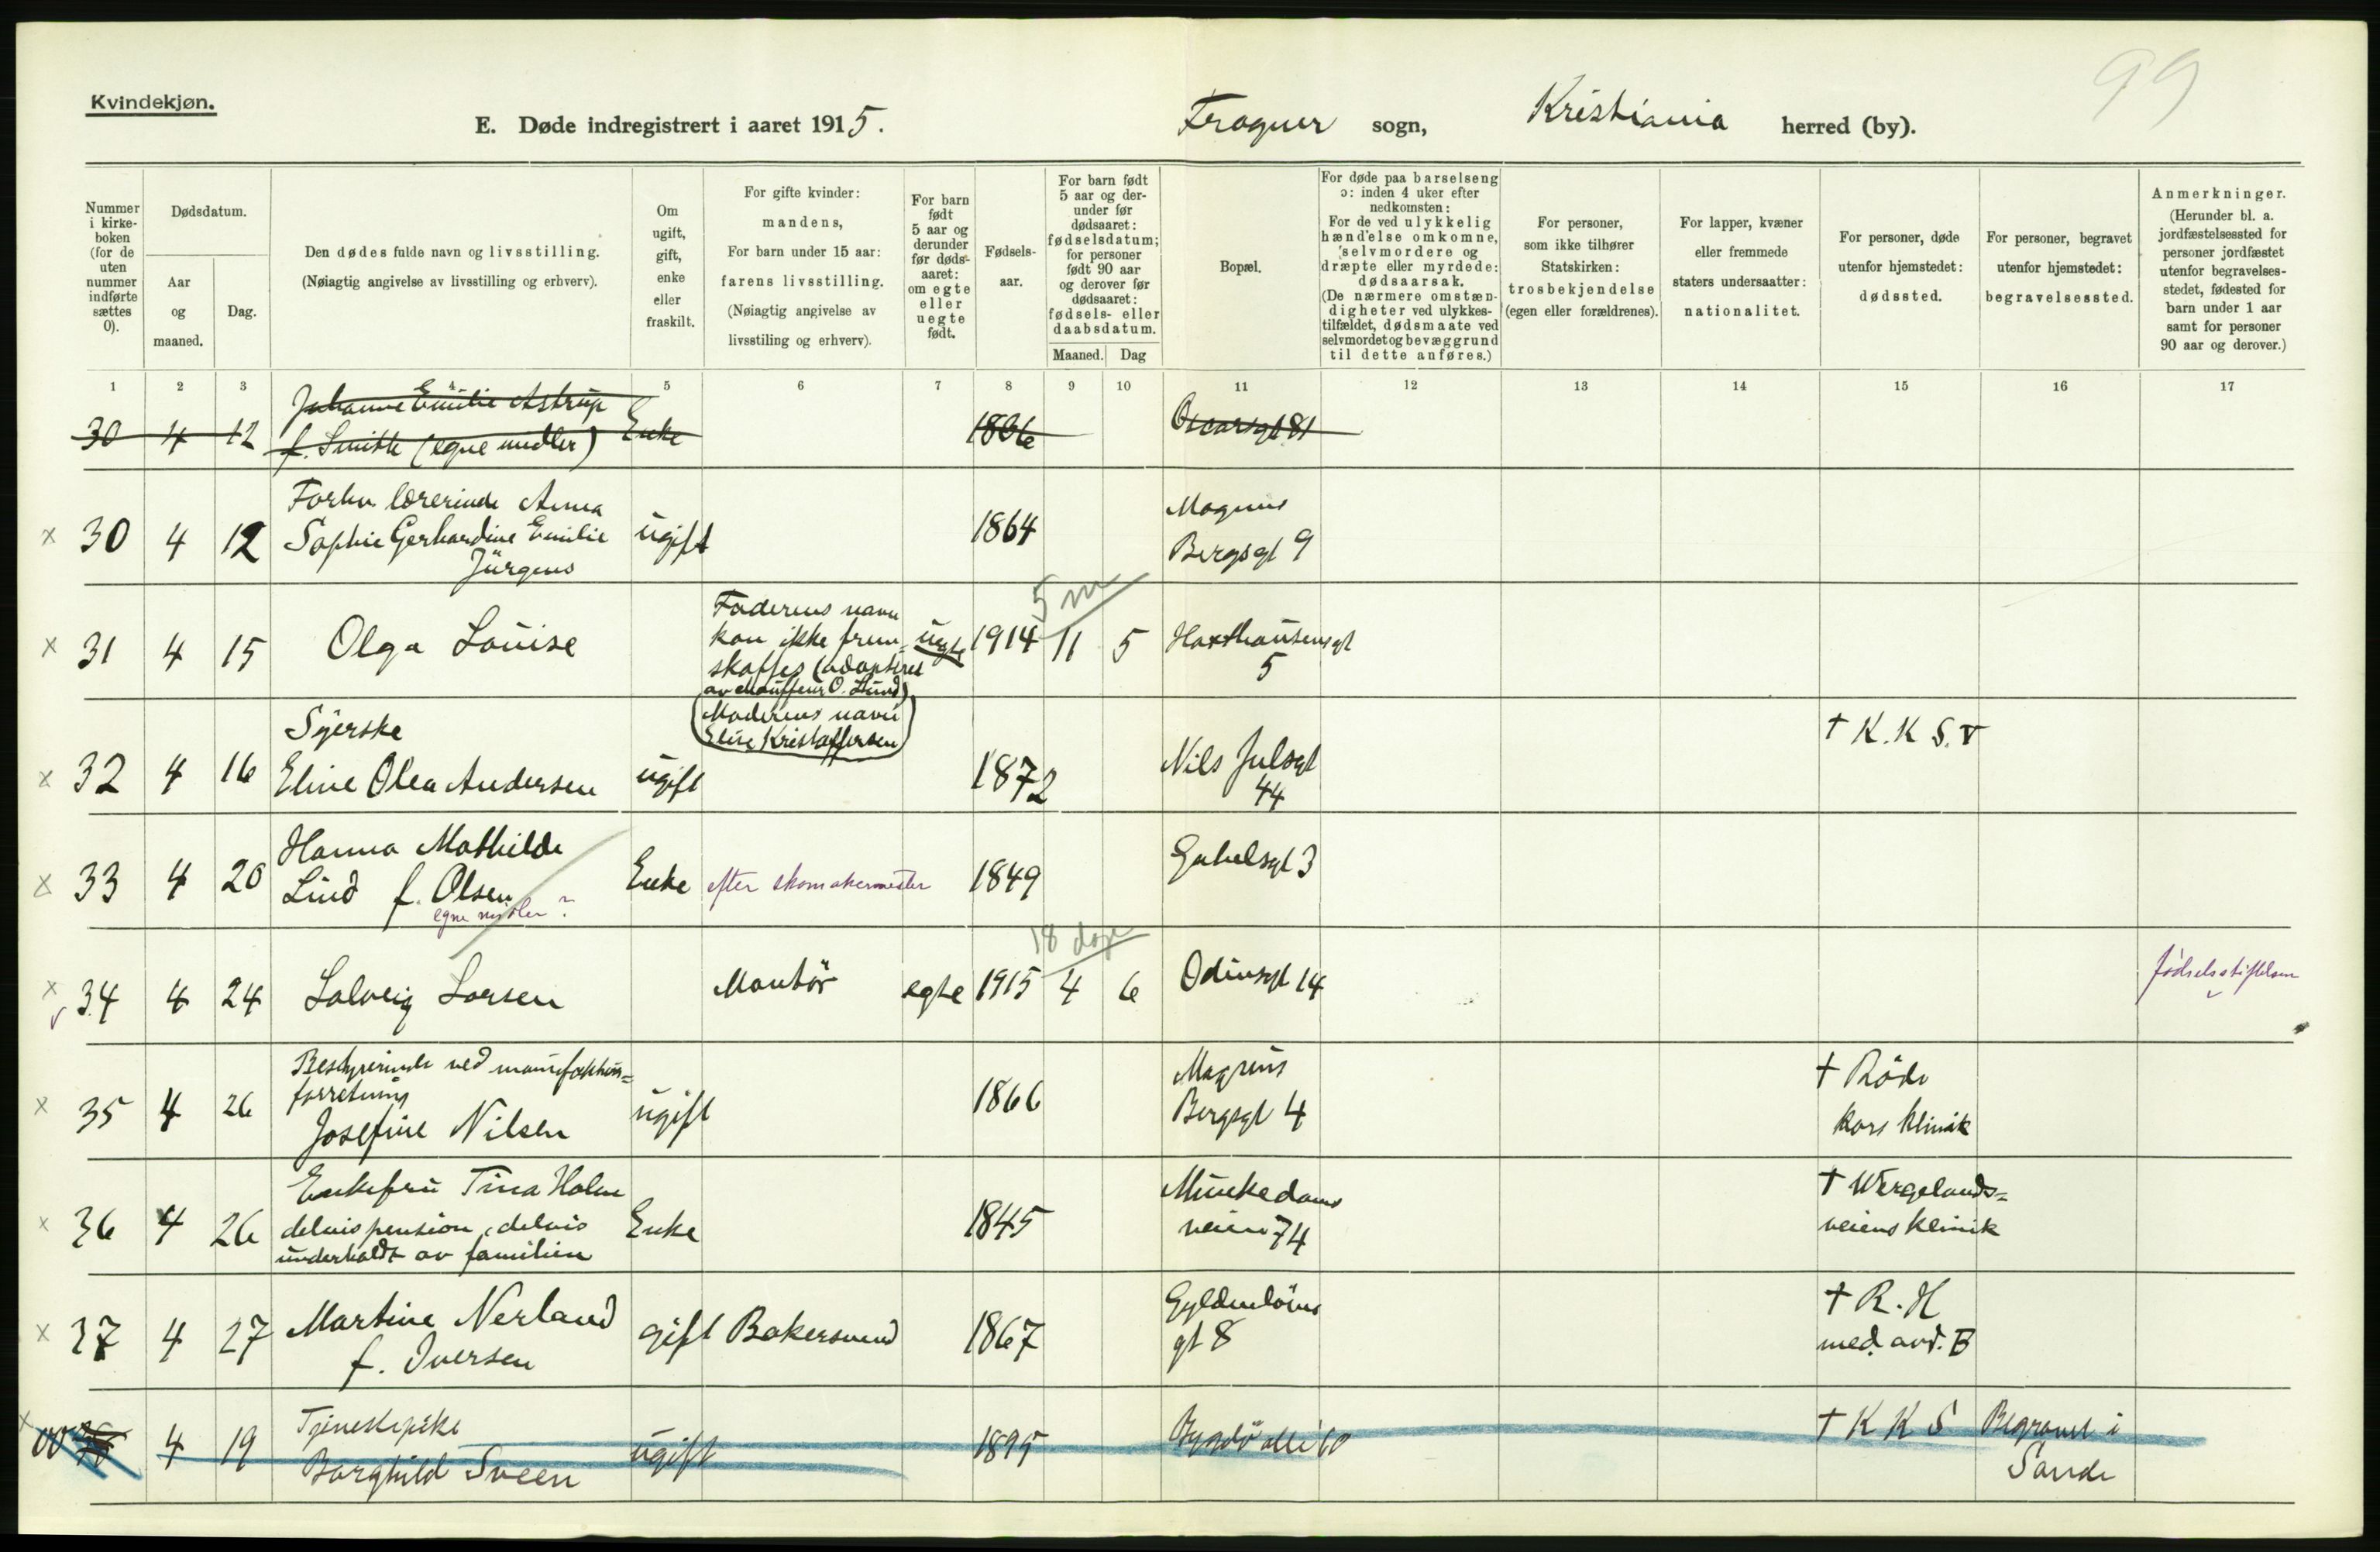 Kvindekjøn.
99
E. Døde indregistrert i aaret 1915.
Frogner sogn, Kristiania herred (by).
Nummer i kirke-boken (for de uten nummer indførte sættes 0).
Dødsdatum.
Aar og maaned.
Dag.
Den dødes fulde navn og livsstilling.
(Nøiagtig angivelse av livsstilling og erhverv).
Om ugift, gift, enke eller fraskilt.
For gifte kvinder: mandens,
For barn under 15 aar: farens livsstilling.
(Nøiagtig angivelse av livsstiling og erhverv).
For barn født 5 aar og derunder før døds-aaret: om egte eller uegte født.
Fødsels-aar.
For barn født 5 aar og der-under før dødsaaret: fødselsdatum; for personer født 90 aar og derover før dødsaaret: fødsels- eller daabsdatum.
Maaned. Dag
Bopæl.
For døde paa barselseng ɔ: inden 4 uker efter nedkomsten:
For de ved ulykkelig hændelse omkomne, selvmordere og dræpte eller myrdede: dødsaarsak.
(De nærmere omstæn-digheter ved ulykkes-tilfældet, dødsmaate ved selvmordet og bevæggrund til dette anføres.)
For personer, som ikke tilhører Statskirken: trosbekjendelse (egen eller forældrenes).
For lapper, kvæner eller fremmede staters undersaatter: nationalitet.
For personer, døde utenfor hjemstedet: dødssted.
For personer, begravet utenfor hjemstedet: begravelsessted.
Anmerkninger.
(Herunder bl. a. jordfæstelsessted for personer jordfæstet utenfor begravelses-stedet, fødested for barn under 1 aar samt for personer 90 aar og derover.)
1 2 3 4 5 6 7 8 9 10 11 12 13 14 15 16 17
Johanne Emilie Astrup
30 4 12 f. Smith (egne midler) Enke 1806 Oscarsgt 81
Forhv. lærerinde Anna
x 30 4 12 Sophie Gerhardine Emilie ugift 1864 Magnus
Jürgens Bergsgt 9
5 m
Faderens navn
x 31 4 15 Olga Louise kan ikke frem- uegte 1914 11 5 Haxthausensgt
skaffes (adopteret 5
av chauffeur O. Lund)
(Moderens navn
Elise Kristoffersen)
Syerske † K.K S. V
x 32 4 16 Eline Olea Andersen ugift 1872 Nils Julsgt
44
Hanna Mathilde
x 33 4 20 Lind f. Olsen Enke efter skomakermester 1849 Gabelsgt 3
egne midler?
18 dage
x v 34 4 24 Solveig Larsen Montör egte 1915 4 6 Odinsgt 14 fødselsstiftelsen
Bestyrerinde ved manufaktur=
forretning
x 35 4 26 Josefine Nilsen ugift 1866 Magnus † Röde
Bergsgt 4 Kors Klinik
Enkefru Tina Holm
x 36 4 26 delvis pension, delvis Enke 1845 Munkedams † Wergelands=
underholdt av familien veien 74 veiens Klinik
x 37 4 27 Martine Nerland gift Bakersvend 1867 Gyldenlöves † R. H
f. Iversen gt 8 med. avd. B
Tjenestepike
x 00 4 19 Borghild Sveen ugift 1895 Bygdö alle 60 † K K S Begravet i
Sande